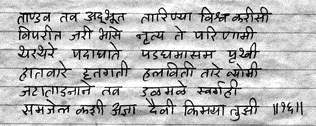 ताण्डव तव अद्भूत तारिण्या विश्व करीसी
विपरीत जरी भासे नृत्य ते परिणामी
थरथरे पदाघाते पडघमासम पृथ्वी
हातवारे द्रुतगती हलविती तारे व्योमी
जटाताडनाने तव डळमळे स्वर्गही
समजेल कशी अज्ञा दैवी किमया तुझी ॥१६॥